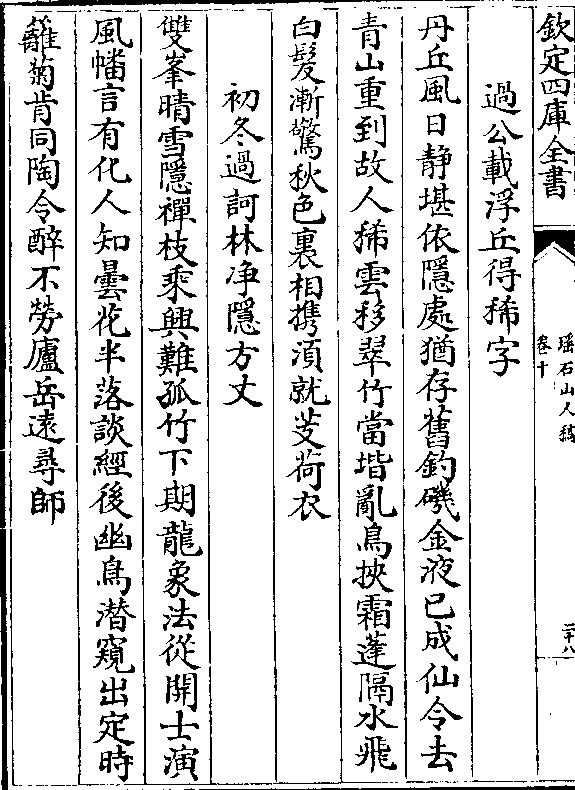 欽定四庫全書
瑶石山人稿
卷十
二十八
過公載浮丘得稀字
丹丘風日静堪依隱處猶存舊釣磯金液已成仙令去
青山重到故人稀雲移翠竹當堦亂鳥挾霜蓬隔水飛
白髮漸驚秋色裏相携須就芰荷衣
初冬過訶林净隱方丈
雙峯晴雪隱禪枝乘興難孤竹下期龍象法從開士演
風幡言有化人知曇花半落談經後幽鳥潜窺出定時
籬菊肯同陶令醉不勞廬岳遠尋師